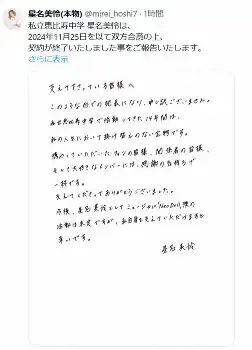 星名美怜(本物) @mirei_hoshi7・1時間
私立恵比寿中学 星名美怜は、
2024年11月25日を以て双方合意の上、
契約が終了いたしました事をご報告いたします。
さらに表示
支えて下さっている皆様へ
このような形での発表になり、申し訳ございません。
私立恵比寿中学で活動してきた14年間は、
私の人生において掛け替えのない宝物です。
携わっていただいたファンの皆様、関係者の皆様、
そして大好きなメンバーには、感謝の気持ちで
一杯です。
支えてくださってありがとうございました。
今後、星名美怜としてミュージカル『Neo Doll』後の
活動は未定ですが、私自身を支えていただけますと
幸いです。
星名美怜